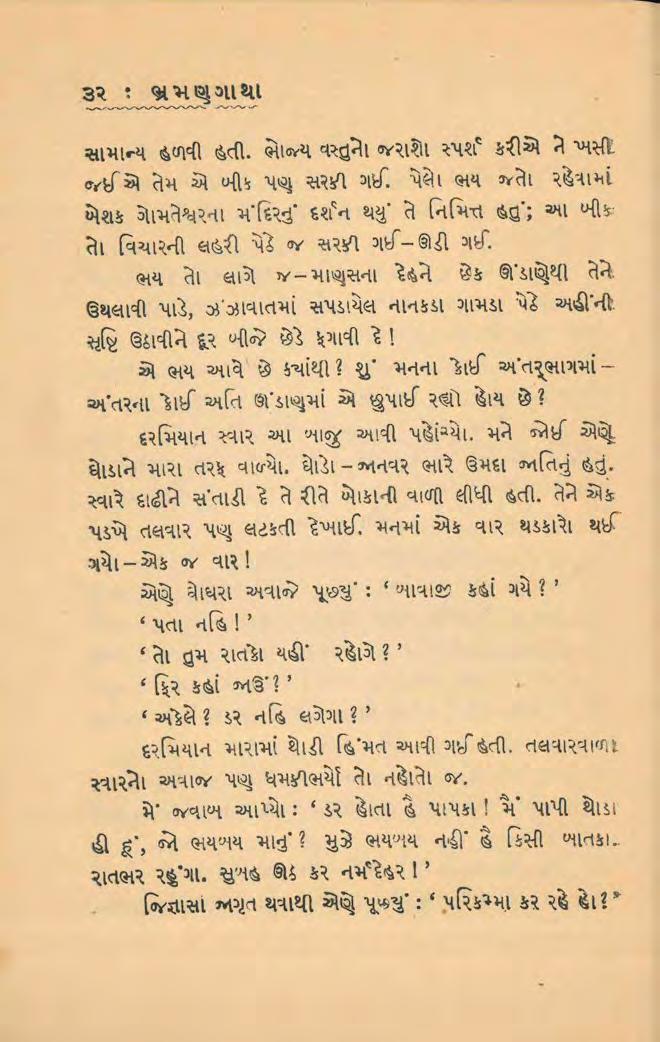 ૩૨ : ભ્રમણગાથા
સામાન્ય હળવી હતી. ભોજ્ય વસ્તુનો જરાશો સ્પર્શ કરીએ ને ખસી
જઈ એ તેમ એ બીક પણ સરકી ગઈ. પેલો ભય જતો રહેવામાં
બેશક ગોમતેશ્વરના મંદિરનું દર્શન થયું તે નિમિત્ત હતું; આ બીક
તો વિચારની લહરી પેઠે જ સરકી ગઈ–ઊડી ગઈ.
ભય તો લાગે જ–માણસના દેહને છેક ઊંડાણેથી તેને
ઉથલાવી પાડે, ઝંઝાવાતમાં સપડાયેલ નાનકડા ગામડા પેઠે અહીંની
સૃષ્ટિ ઉઠાવીને દૂર બીજે છેડે ફગાવી દે!
એ ભય આવે છે ક્યાંથી? શું મનના કોઈ અંતર્ભાગમાં–
અંતરના કોઈ અતિ ઊંડાણમાં એ છુપાઈ રહ્યો હોય છે?
દરમિયાન સ્વાર આ બાજુ આવી પહોંચ્યો. મને જોઈ એણે
ઘોડાને મારા તરફ વાળ્યો. ઘોડો–જાનવર ભારે ઉમદા જાતિનું હતું.
સ્વારે દાઢીને સંતાડી દે તે રીતે બોકાની વાળી લીધી હતી. તેને એક
પડખે તલવાર પણ લટકતી દેખાઈ. મનમાં એક વાર થડકારો થઈ
ગયો–એક જ વાર!
એણે ઘોઘરા અવાજે પૂછ્યું : ‘બાવાજી કહાં ગયે?’
‘પતા નહિ!’
‘તો તુમ રાતકો યહીં રહોગે?’
‘ફિર કહાં જાઉં?’
‘અકેલે? ડર નહિ લગેગા?’
દરમિયાન મારામાં થોડી હિંમત આવી ગઈ હતી. તલવારવાળા
સ્વારનો અવાજ પણ ધમકીભર્યો તો નહોતો જ.
મેં જવાબ આપ્યો : ‘ડર હોતા હૈ પાપકા! મૈં પાપી થોડા
હી હૂં, જો ભયબય માનું? મુઝે ભયબય નહીં હૈ કિસી બાતકા.
રાતભર રહુંગા. સુબહ ઊઠ કર નર્મદેહર!’
જિજ્ઞાસાં જાગૃત થવાથી એણે પૂછ્યું : ‘પરિકમ્મા કર રહે હો?’